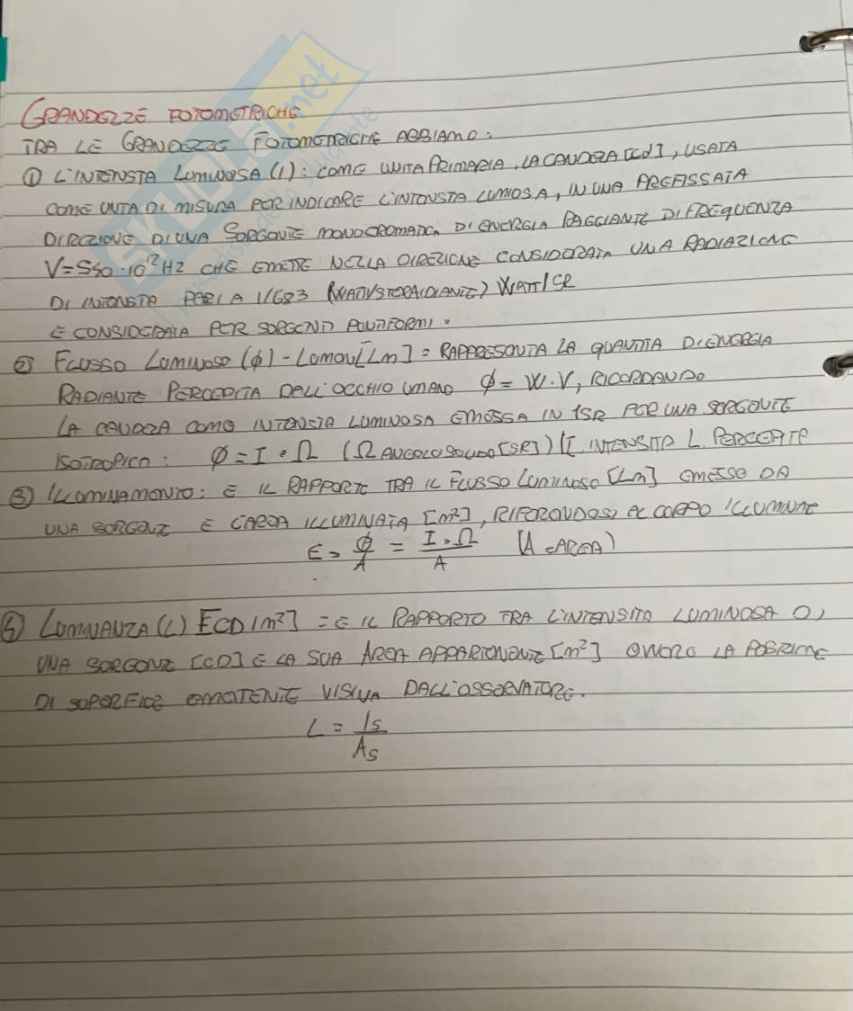 GRANDEZZE FOTOMETRICHE
TRA LE GRANDEZZE FOTOMETRICHE ABBIAMO:
① L'INTENSTA LUMINOSA (I): COME UNITA PRIMARIA, LA CANDELA [cd], USATA
COME UNTA DI MISURA PER INDICARE L'INTENSTA LUMIOSA, IN UNA PREFISSATA
DIREZIONE DI UNA SORGENTE MONOCROMATICA DI ENERGIA RAGGIANTE DI FREQUENZA
V=540·10¹²HZ CHE EMETTE NELLA DIREZIONE CONSIDERATA UNA RADIAZIONE
DI INTENSTA PARI A 1/683 WATT/SR
E CONSIDERATA PER SORGENTI PUNTIFORMI.
② FLUSSO LUMINOSO (ϕ) - LUMEN [Lm] = RAPPRESENTA LA QUANTITA DI ENERGIA
RADIANTE PERCEPITA DALL'OCCHIO UMANO ϕ = W·V, RICORDANDO
LA CANDELA COME INTENSTA LUMINOSA EMESSA IN 1SR PER UNA SORGENTE
ISOTROPICA: ϕ = I · Ω (Ω ANGOLO SOLIDO [SR]) I INTENSITÀ L. PERCEPITA
③ ILLUMINAMENTO: E IL RAPPORTO TRA IL FLUSSO LUMINOSO [Lm] EMESSO DA
UNA SORGENTE E L'AREA ILLUMINATA [m²], RIFERENDOSI AL CORPO ILLUMINANTE
E = ϕ/A = I·Ω/A (A = AREA)
④ LUMINANZA (L) [CD/m²] = E IL RAPPORTO TRA L'INTENSITÀ LUMINOSA DI
UNA SORGENTE [CD] E LA SUA AREA APPARTENENTE [m²] OVVERO LA PORZIONE
DI SUPERFICE EMETTENTE VISIVA DALL'OSSERVATORE.
L = Is/As
SKUOLA.net